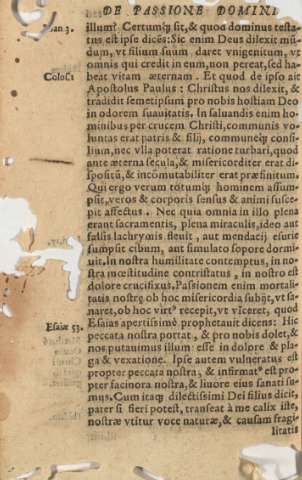 DE PASSIONE DOMINI
illum? Certumq; sit, & quod dominus testa-
tus est ipse dicēs: Sic enim Deus dilexit mū-
dum, vt filium suum daret vnigenitum, vt
omnis qui credit in eum, non pereat, sed ha-
beat vitam æternam. Et quod de ipso ait
Apostolus Paulus: Christus nos dilexit, &
tradidit semetipsum pro nobis hostiam Deo
in odorem suauitatis. In saluandis enim ho-
minibus per crucem Christi, communis vo-
luntas erat patris & filij, communeq; consi-
lium, nec vlla poterat ratione turbari, quod
ante æterna secula, & misericorditer erat di-
spositū, & incōmutabiliter erat præfinitum.
Qui ergo verum totumq; hominem assum-
psit, veros & corporis sensus & animi susce-
pit affectus. Nec quia omnia in illo plena
erant sacramentis, plena miraculis, ideo aut
falsis lachrymis fleuit, aut mendaci esurie
sumpsit cibum, aut simulato sopore dormi-
uit. In nostra humilitate contemptus, in no-
stra mœstitudine contristatus, in nostro est
dolore crucifixus. Passionem enim mortali-
tatis nostrę ob hoc misericordia subijt, vt sa-
naret, ob hoc virt⁹ recepit, vt vīceret, quod
Esaias apertissimè prophetauit dicens: Hic
peccata nostra portat, & pro nobis dolet, &
nos putauimus illum esse in dolore & pla-
ga & vexatione. Ipse autem vulneratus est
propter peccata nostra, & infirmat⁹ est pro-
pter facinora nostra, & liuore eius sanati su-
mus. Cum itaq; dilectissimi Dei filius dicit,
pater si fieri potest, transeat à me calix iste,
nostræ vtitur voce naturæ, & causam fragi-
litatis
oan 3.
Colos: 1
Esaiæ 53.